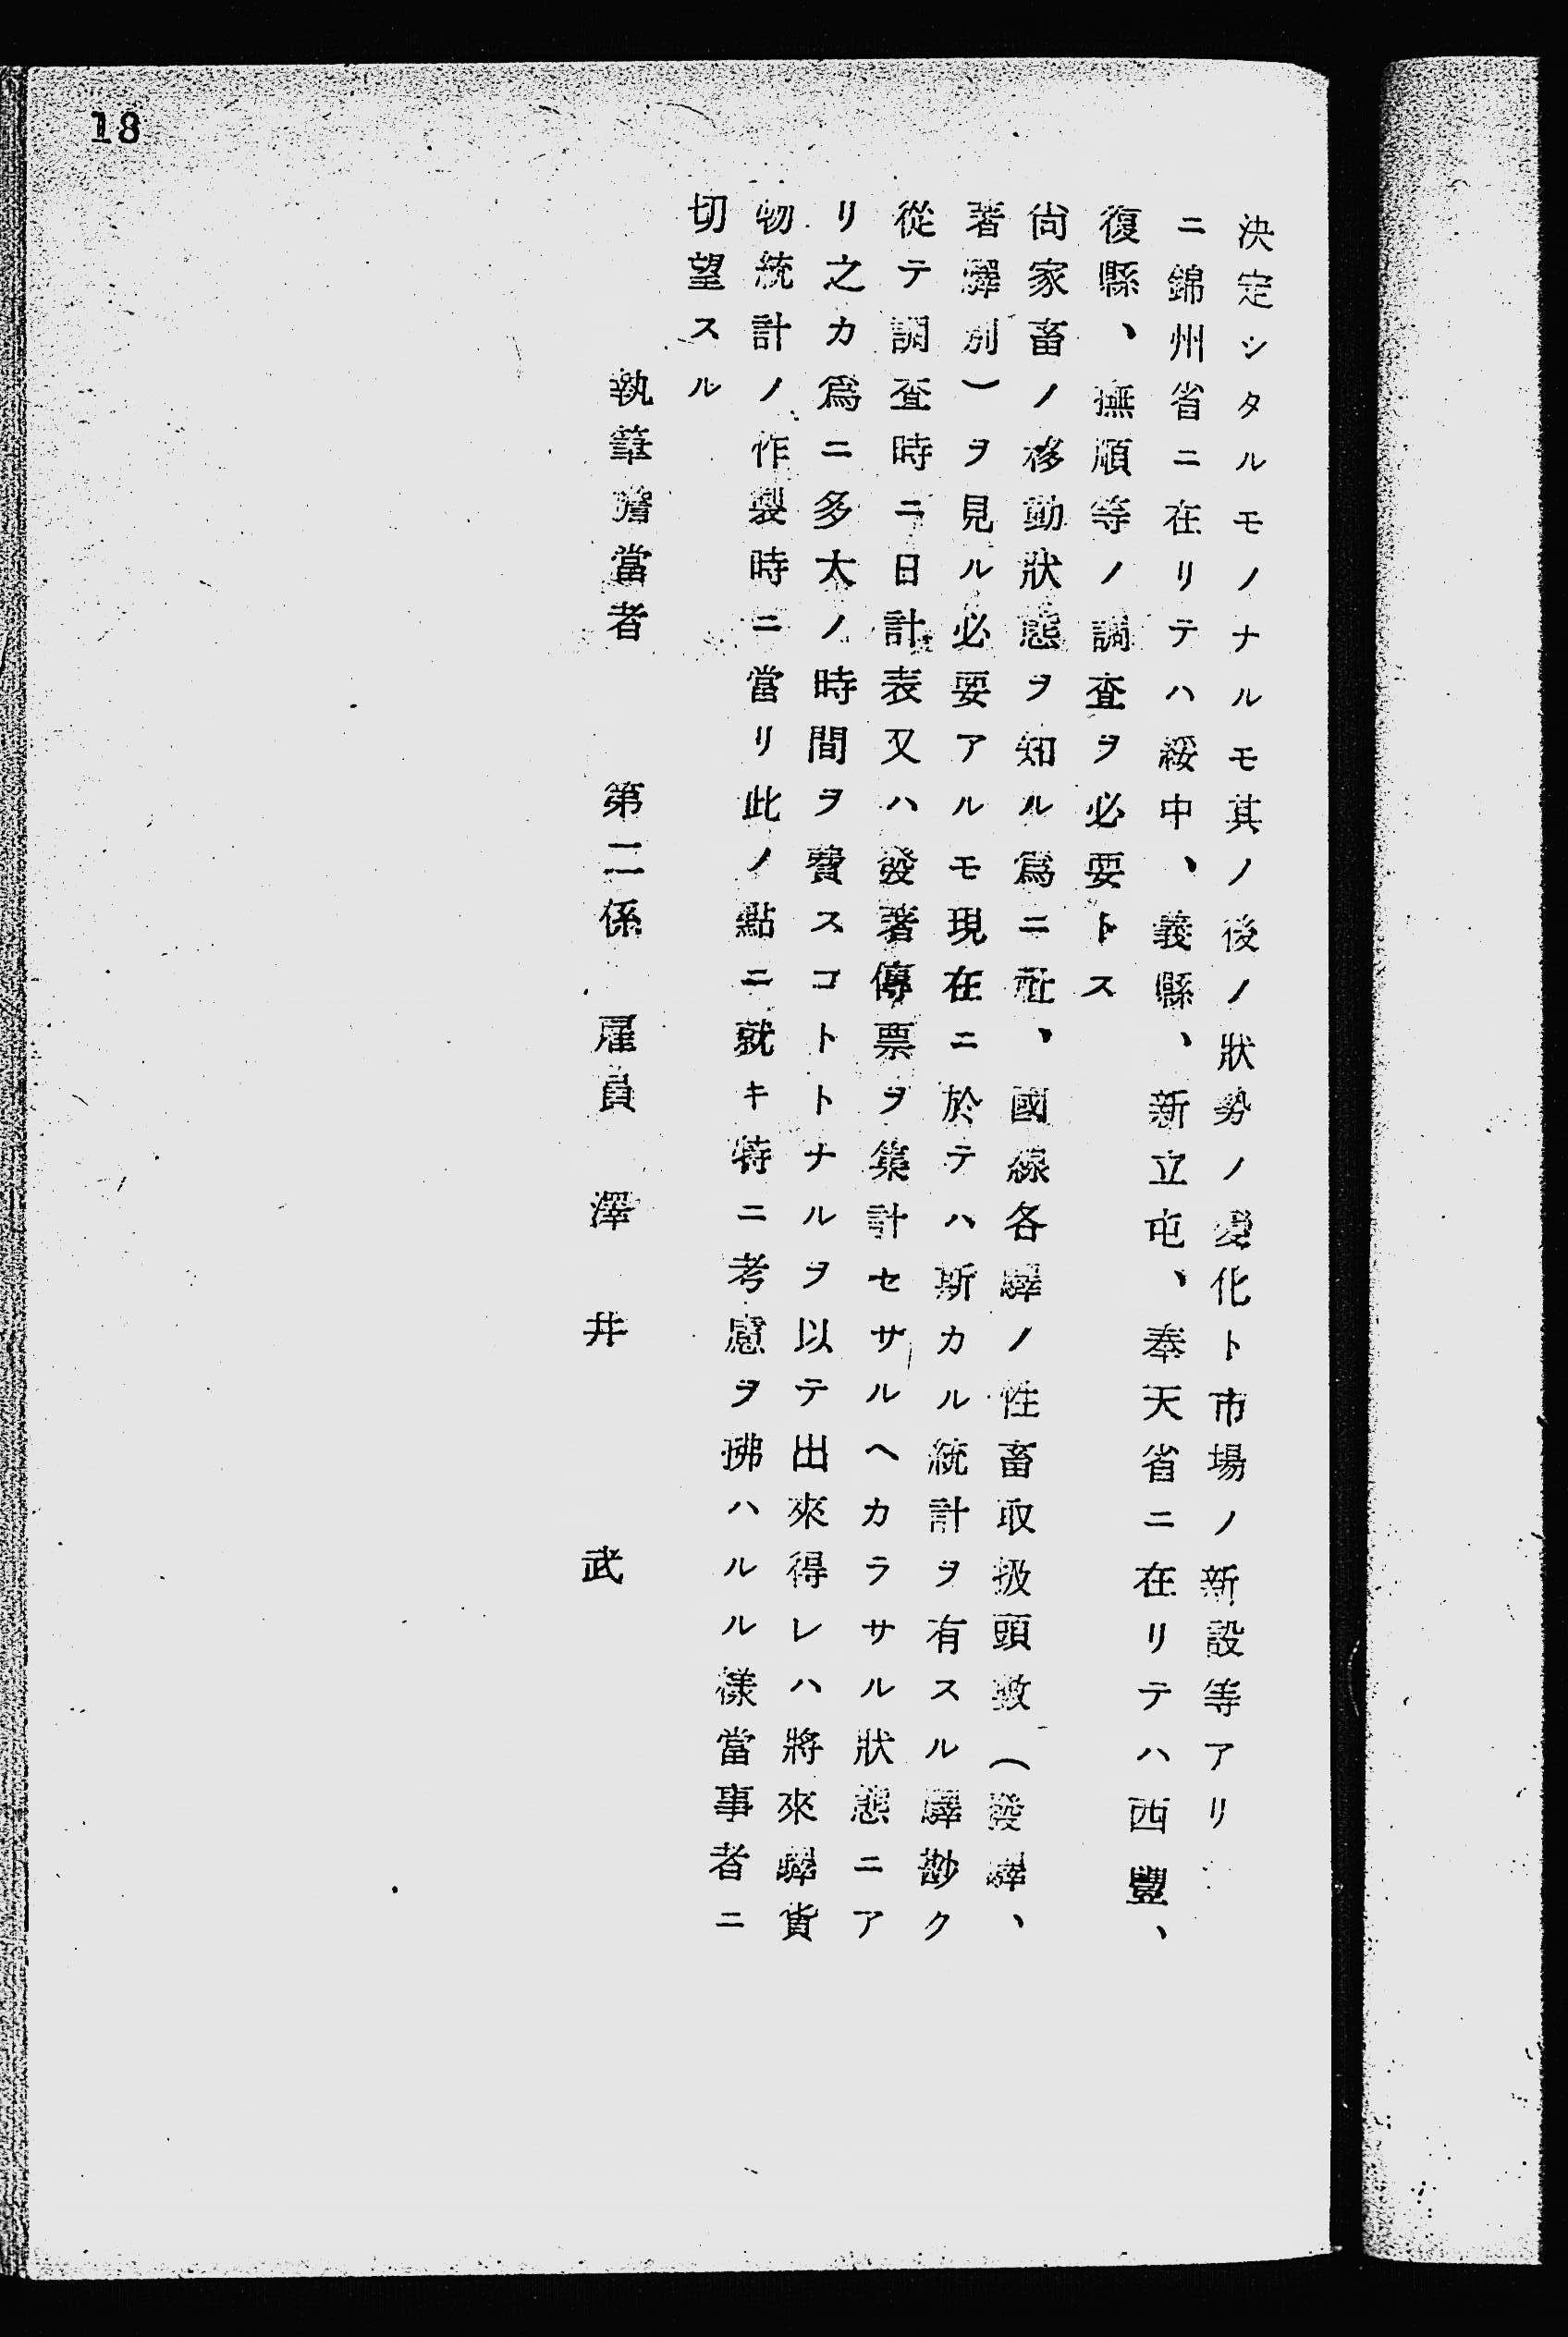 決定シタルモノナルモ其ノ後ノ狀勢ノ變化ト市場ノ新設等アリ
ニ錦州省ニ在リテハ綏中、義縣、新立屯、奉天省ニ在リテハ西豐、
復縣、撫順等ノ調査ヲ必要トス
尙家畜ノ移動狀態ヲ知ル爲ニ社、國線各驛ノ性畜取扱頭數（發驛、
著驛別）ヲ見ル必要アルモ現在ニ於テハ斯カル統計ヲ有スル驛尠ク
從テ調査時ニ日計表又ハ發著傳票ヲ集計セサルヘカラサル狀態ニア
リ之カ爲ニ多大ノ時間ヲ費スコトトナルヲ以テ出來得レハ將來驛貨
物統計ノ作製時ニ當リ此ノ點ニ就キ特ニ考慮ヲ拂ハルル樣當事者ニ
切望スル
執筆擔當者　第二係　雇員　澤井　武
18